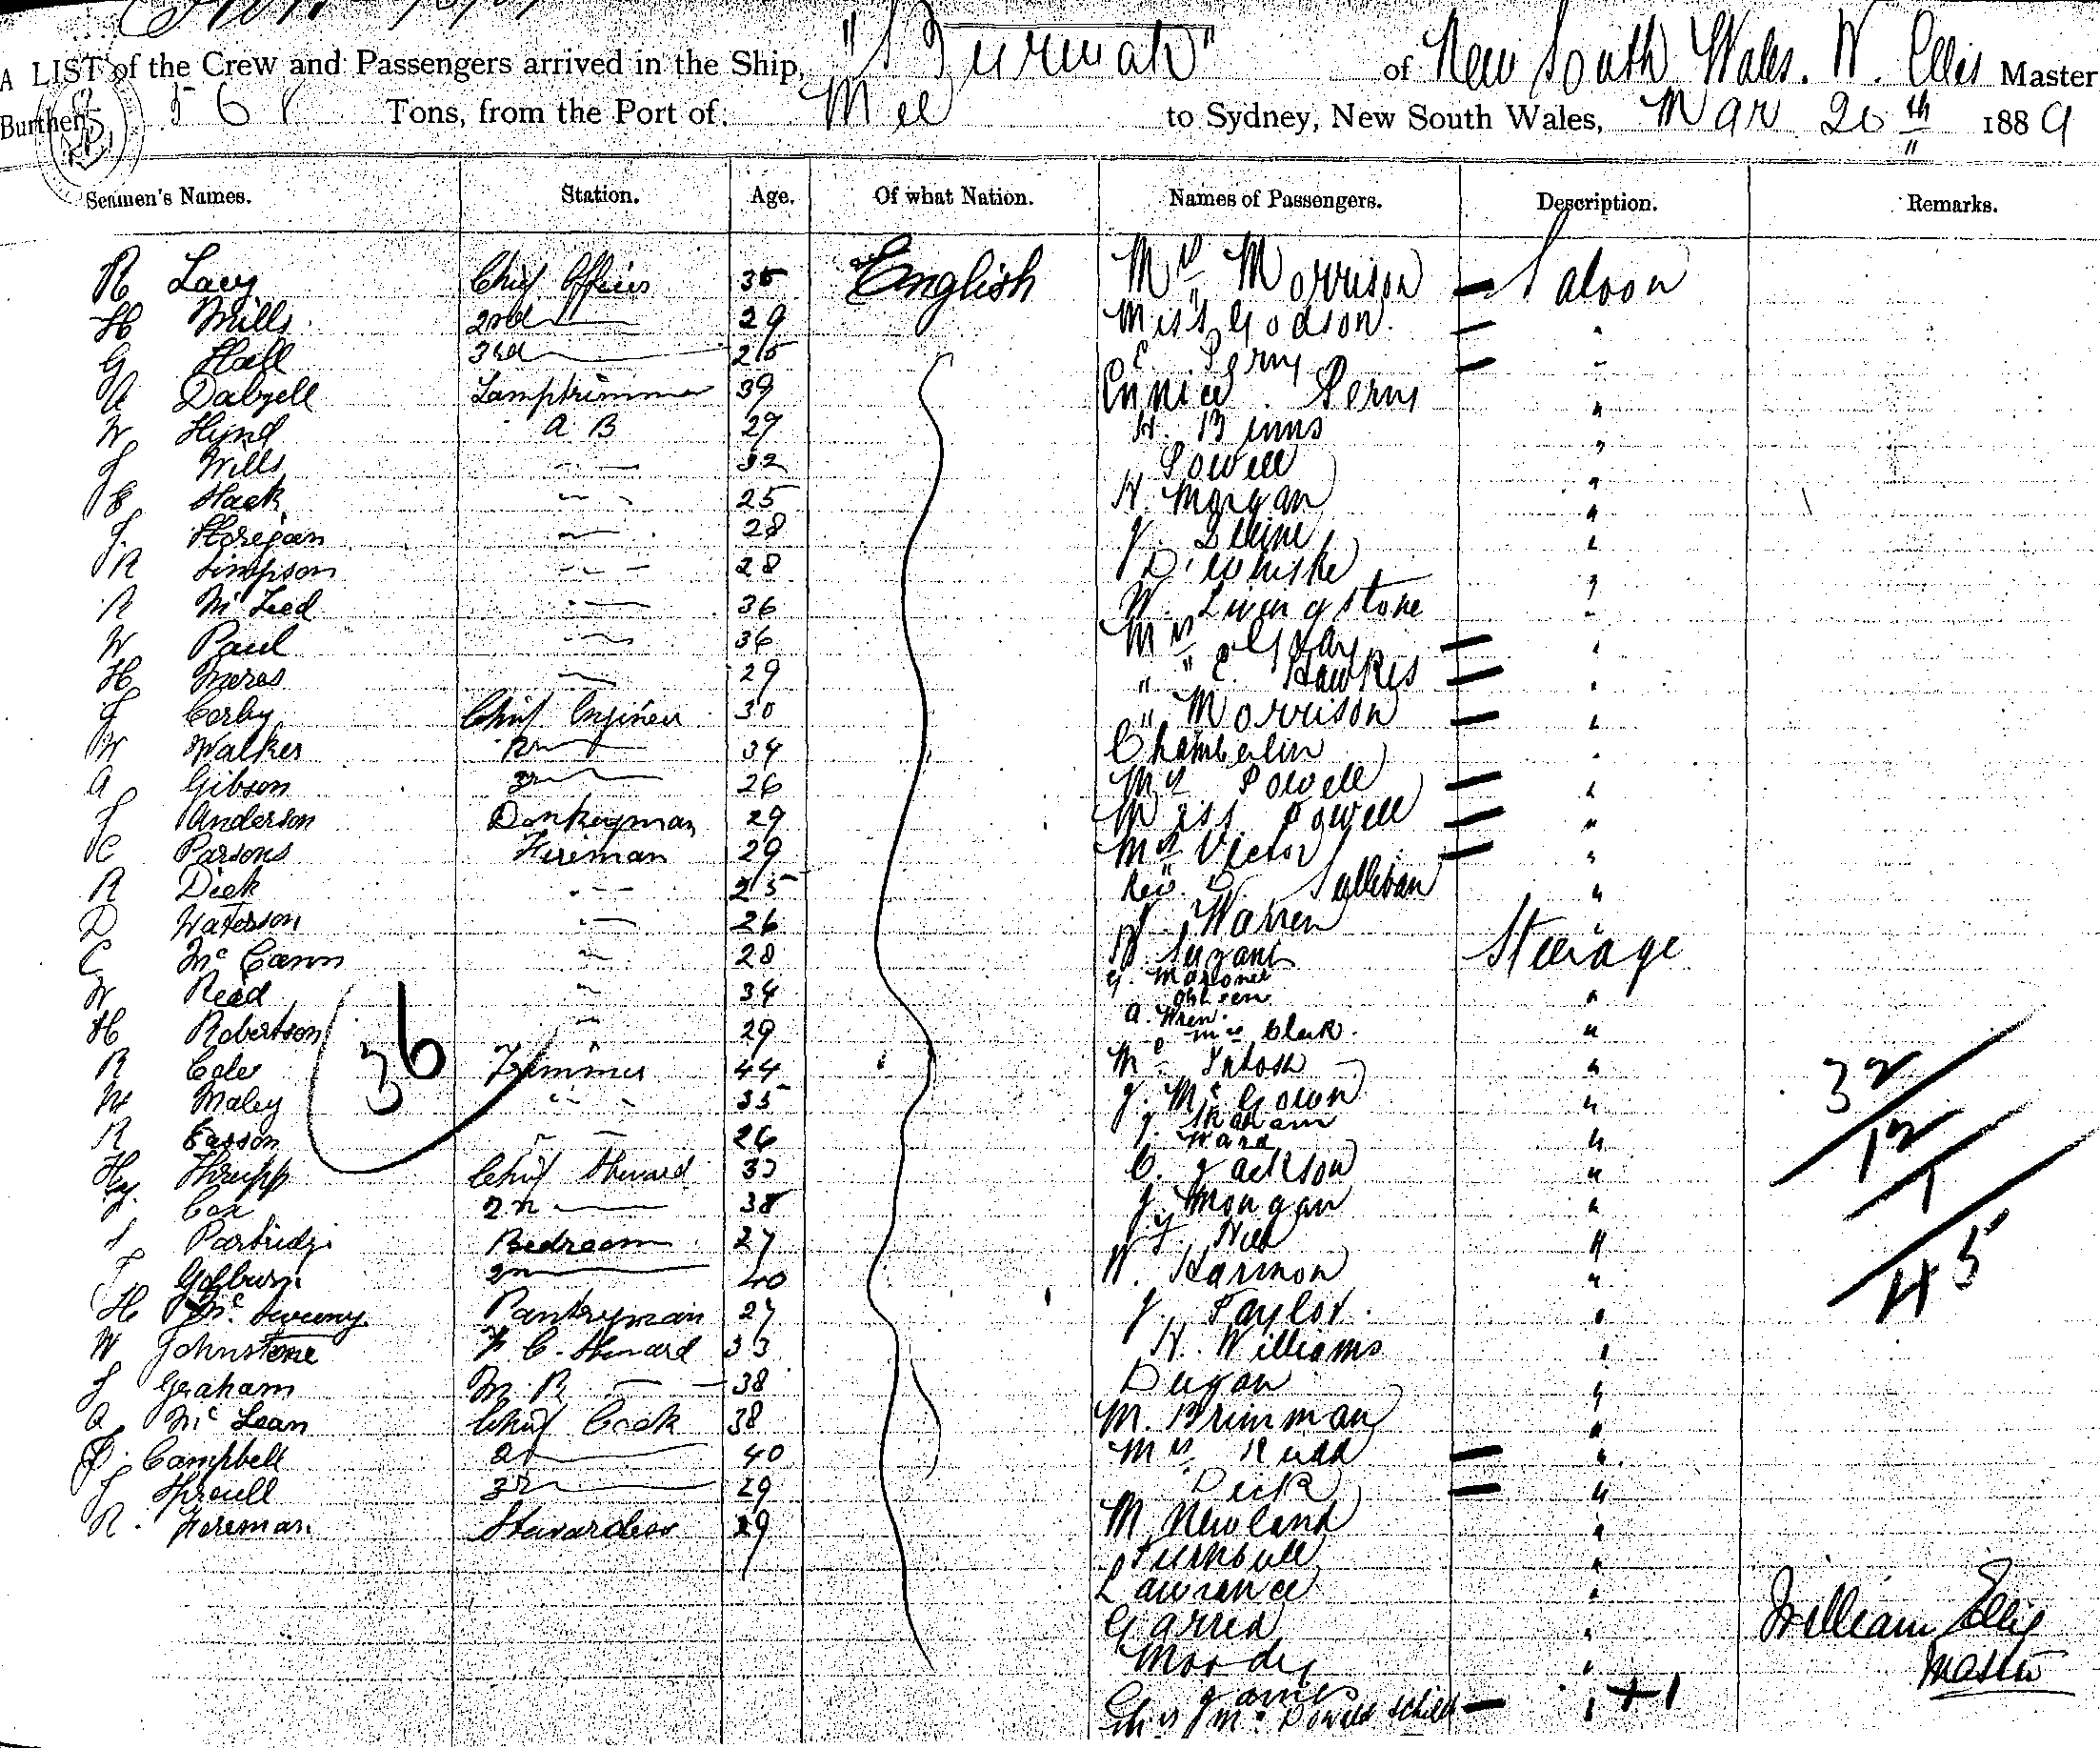 A LIST of the Crew and Passengers arrived in the Ship, "Burwah" of New South Wales. W. Ellis Master
Burthen, 568 Tons, from the Port of Mel to Sydney, New South Wales, Mar 20th 1889
Seamen's Names. Station. Age. Of what Nation. Names of Passengers. Description. Remarks.
R Lacy Chief Officer 35 English Mrs Morrison — Saloon
H Mills 2nd — 29 Miss Godson — "
G Hall 3rd — 25 E Perry — "
A Dalzell Lamptrimmer 39 Perry "
W Hynd A B 29 H. Binns "
J Wills " 32 Powell "
E Hack " 25 H. Morgan "
J. Horigan " 28 J. "
R Simpson " 28 D. "
R McLeod " 36 W. Livingstone "
W Paul " 36 Mrs Gray — "
H " 29 " E. Hawkes — "
J Corby Chief Engineer 30 " Morrison — "
W Walker 2n — 34 Chamberlin "
A Gibson 3r — 26 Mrs Powell — "
J Anderson Donkeyman 29 Miss Powell — "
C Parsons Fireman 29 Mrs Victor — "
R Dick " 25 Rev. Sullivan "
D Waterson " 26 J Warren "
C McCann " 28 Steerage
W Reid " 34 G.
A. Wren "
H Robertson " 29 Mrs Clark "
R Cole Trimmer 44 Mc Intosh "
W Maley " 35 J. McGown "
J. Graham
R Easson " 26 J. Ward "
Hy. Thrupp Chief Steward 33 C. Jackson "
J. Cox 2n — 38 J. Morgan "
Partridge Bedroom 27 J. Hill "
2n — 40 W. Harmon "
H McSweeny Pantryman 27 J. Taylor "
W Johnstone F. C. Steward 33 H. Williams "
J Graham M. R — 38 Dugan "
A McLean Chief Cook 38 M. Brinman "
Campbell 2n — 40 Mrs Rudd — "
J Sproull 3r — 29 Dick — "
R. Foreman Stewardess 29 M Newland "
Turnbull "
Lawrence "
Garred "
Moody "
James
McDonald & child — " +1
36
32
12
1
45
William Ellis
Master